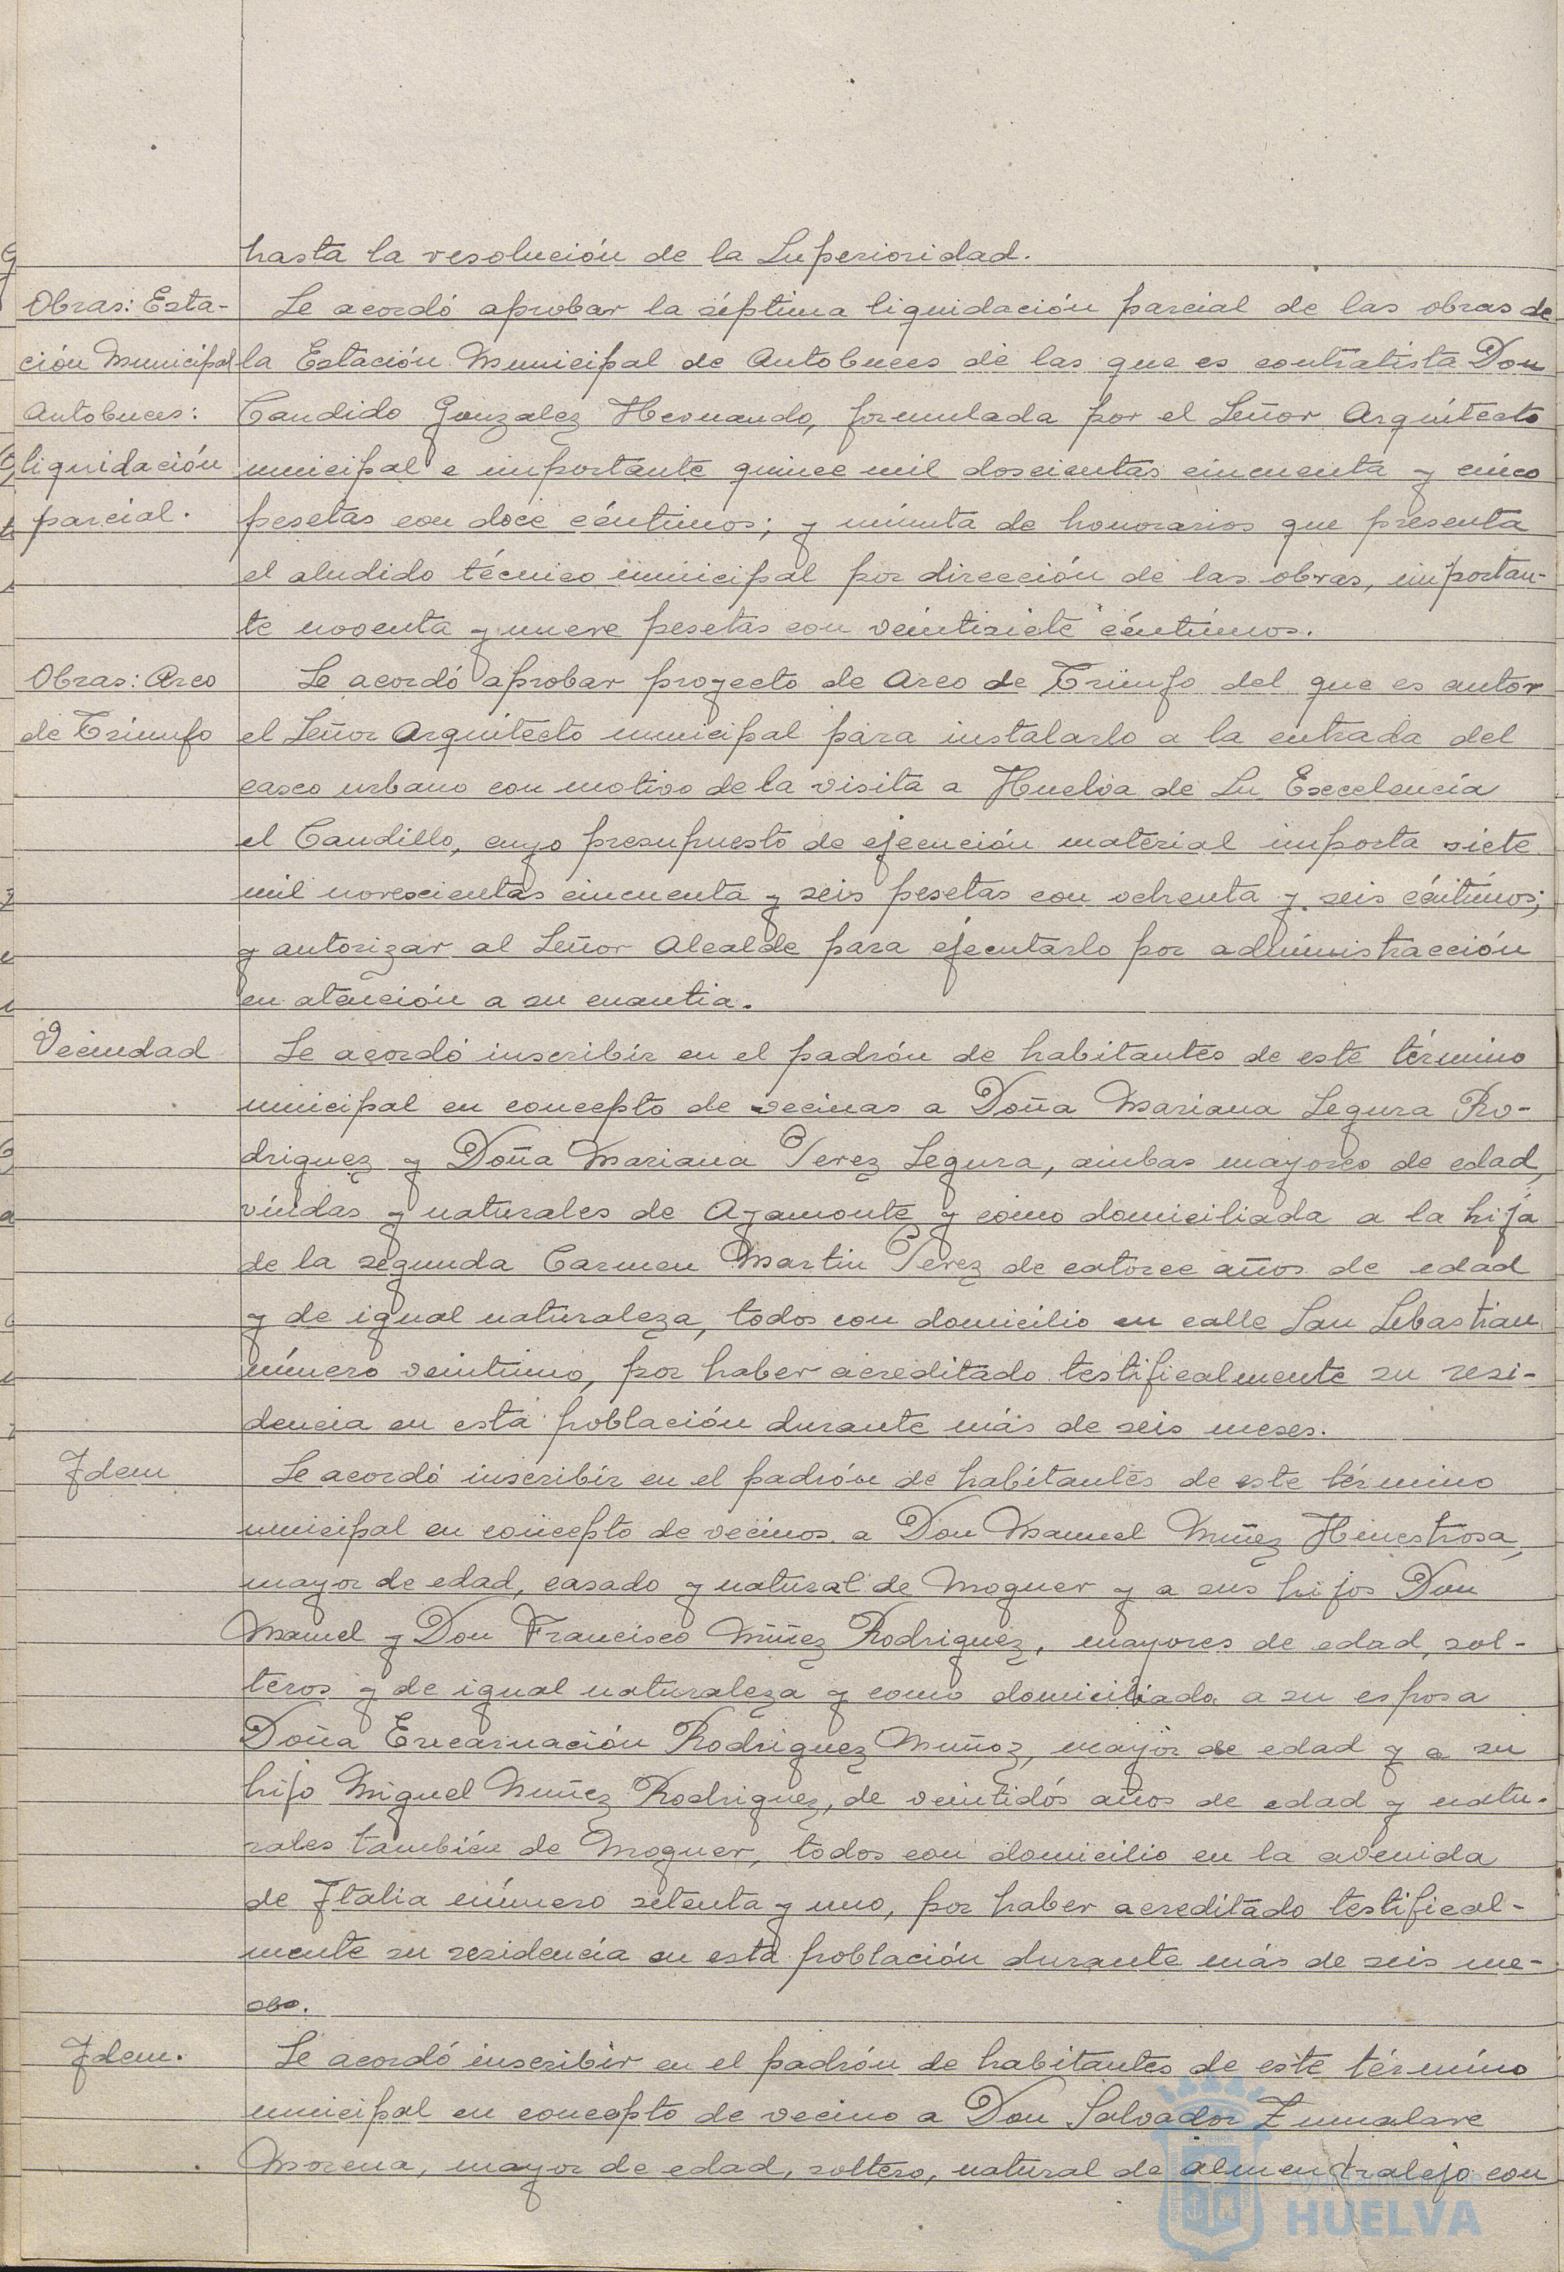 hasta la resolución de la Superioridad.
Obras: Esta-
ción Municipal
Autobuces:
liquidación
parcial.
Se acordó aprobar la séptima liquidación parcial de las obras de
la Estación Municipal de Autobuces de las que es contratista Don
Candido Gonzalez Hernando, formulada por el Señor Arquitecto
municipal e importante quince mil doscientas cincuenta y cinco
pesetas con doce céntimos; y minuta de honorarios que presenta
el aludido técnico municipal por dirección de las obras, importan-
te noventa y nueve pesetas con veintisiete céntimos.
Obras: Arco
de Triunfo
Se acordó aprobar proyecto de Arco de Triunfo del que es autor
el Señor Arquitecto municipal para instalarlo a la entrada del
casco urbano con motivo de la visita a Huelva de Su Excelencia
el Caudillo, cuyo presupuesto de ejecución material importa siete
mil novescientas cincuenta y seis pesetas con ochenta y seis céntimos;
y autorizar al Señor Alcalde para ejecutarlo por administracción
en atención a su cuantia.
Vecindad
Se acordó inscribir en el padrón de habitantes de este término
municipal en concepto de vecinas a Doña Mariana Segura Ro-
driguez y Doña Mariana Perez Segura, ambas mayores de edad,
viudas y naturales de Ayamonte y como domiciliada a la hija
de la segunda Carmen Martin Perez de catorce años de edad
y de igual naturaleza, todos con domicilio en calle San Sebastian
número veintiuno, por haber acreditado testificalmente su resi-
dencia en esta población durante más de seis meses.
Idem
Se acordó inscribir en el padrón de habitantes de este término
municipal en concepto de vecinos a Don Manuel Nuñez Hinestrosa,
mayor de edad, casado y natural de Moguer y a sus hijos Don
Manuel y Don Francisco Nuñez Rodriguez, mayores de edad, sol-
teros y de igual naturaleza y como domiciliada a su esposa
Doña Encarnación Rodriguez Muñoz, mayor de edad y a su
hijo Miguel Nuñez Rodriguez, de veintidós años de edad y natu-
rales también de Moguer, todos con domicilio en la avenida
de Italia número setenta y uno, por haber acreditado testifical-
mente su residencia en esta población durante más de seis me-
ses.
Idem.
Se acordó inscribir en el padrón de habitantes de este término
municipal en concepto de vecino a Don Salvador Zumalave
Morena, mayor de edad, soltero, natural de Almendralejo con
Ayuntamiento de
HUELVA